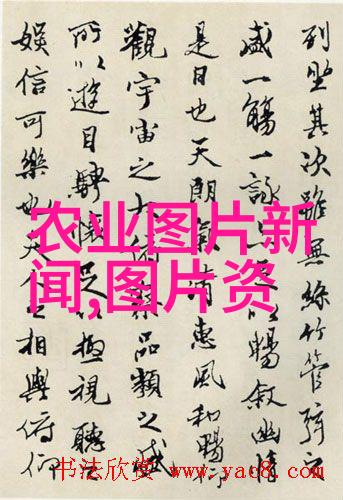 列坐其次雖無絲竹管弦之
盛一觴一詠亦足以暢敘幽情
是日也天朗氣清惠風和暢仰
觀宇宙之大俯察品類之盛
所以遊目騁懷足以極視聽之
娛信可樂也夫人之相與俯仰
农业图片新
闻,图片资
书法欣赏 www.yac8.com